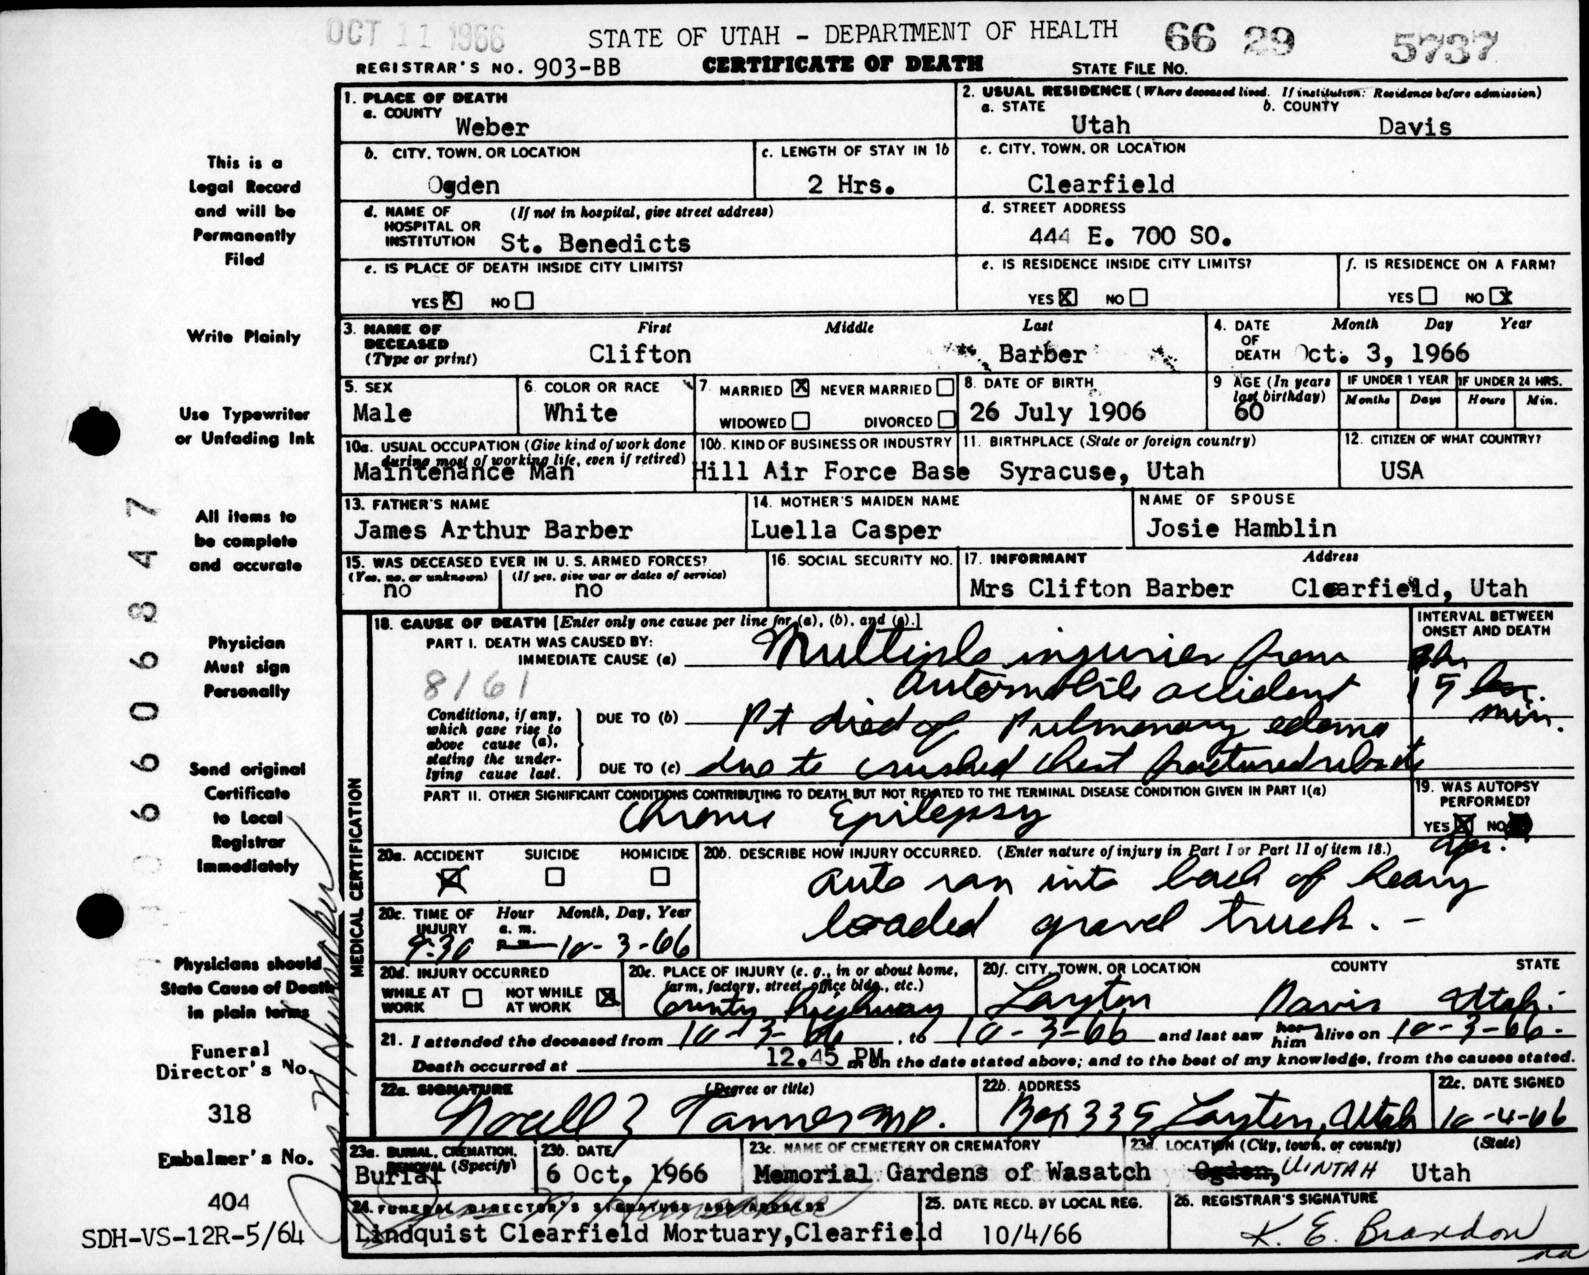 OCT 11 1966
STATE OF UTAH - DEPARTMENT OF HEALTH 66 29 5737
REGISTRAR'S NO. 903-BB CERTIFICATE OF DEATH STATE FILE NO.
1. PLACE OF DEATH
a. COUNTY
Weber
2. USUAL RESIDENCE (Where deceased lived. If institution: Residence before admission)
a. STATE b. COUNTY
Utah Davis
b. CITY, TOWN, OR LOCATION
Ogden
c. LENGTH OF STAY IN 1b
2 Hrs.
c. CITY, TOWN, OR LOCATION
Clearfield
d. NAME OF HOSPITAL OR INSTITUTION (If not in hospital, give street address)
St. Benedicts
d. STREET ADDRESS
444 E. 700 SO.
e. IS PLACE OF DEATH INSIDE CITY LIMITS?
YES X NO
e. IS RESIDENCE INSIDE CITY LIMITS?
YES X NO
f. IS RESIDENCE ON A FARM?
YES NO X
3. NAME OF DECEASED (Type or print) First Middle Last
Clifton Barber
4. DATE OF DEATH Month Day Year
Oct. 3, 1966
5. SEX
Male
6. COLOR OR RACE
White
7. MARRIED X NEVER MARRIED
WIDOWED DIVORCED
8. DATE OF BIRTH
26 July 1906
9 AGE (In years last birthday)
60
IF UNDER 1 YEAR IF UNDER 24 HRS.
Months Days Hours Min.
10a. USUAL OCCUPATION (Give kind of work done during most of working life, even if retired)
Maintenance Man
10b. KIND OF BUSINESS OR INDUSTRY
Hill Air Force Base
11. BIRTHPLACE (State or foreign country)
Syracuse, Utah
12. CITIZEN OF WHAT COUNTRY?
USA
13. FATHER'S NAME
James Arthur Barber
14. MOTHER'S MAIDEN NAME
Luella Casper
NAME OF SPOUSE
Josie Hamblin
15. WAS DECEASED EVER IN U. S. ARMED FORCES?
(Yes, no, or unknown) (If yes, give war or dates of service)
no no
16. SOCIAL SECURITY NO.
17. INFORMANT Address
Mrs Clifton Barber Clearfield, Utah
18. CAUSE OF DEATH [Enter only one cause per line for (a), (b), and (c).]
PART I. DEATH WAS CAUSED BY:
IMMEDIATE CAUSE (a) Multiple injuries from
automobile accident
8161
Conditions, if any, which gave rise to above cause (a), stating the underlying cause last.
DUE TO (b) Pt died of Pulmonary edema
DUE TO (c) due to crushed chest fractured
INTERVAL BETWEEN ONSET AND DEATH
15
min.
PART II. OTHER SIGNIFICANT CONDITIONS CONTRIBUTING TO DEATH BUT NOT RELATED TO THE TERMINAL DISEASE CONDITION GIVEN IN PART I(a)
Chronic Epilepsy
19. WAS AUTOPSY PERFORMED?
YES X NO
20a. ACCIDENT SUICIDE HOMICIDE
X
20b. DESCRIBE HOW INJURY OCCURRED. (Enter nature of injury in Part I or Part II of item 18.)
Auto ran into back of heavy
loaded gravel truck. -
20c. TIME OF INJURY Hour Month, Day, Year
a. m.
p. m.
9:30 10-3-66
20d. INJURY OCCURRED
WHILE AT WORK NOT WHILE AT WORK X
20e. PLACE OF INJURY (e. g., in or about home, farm, factory, street, office bldg., etc.)
County highway
20f. CITY, TOWN, OR LOCATION COUNTY STATE
Layton Davis Utah.
21. I attended the deceased from 10-3-66, to 10-3-66 and last saw her him alive on 10-3-66.
Death occurred at 12.45 PM m on the date stated above; and to the best of my knowledge, from the causes stated.
22a. SIGNATURE (Degree or title)
Noall Z Tanner MD.
22b. ADDRESS
Box 335 Layton, Utah
22c. DATE SIGNED
10-4-66
23a. BURIAL, CREMATION, REMOVAL (Specify)
Burial
23b. DATE
6 Oct. 1966
23c. NAME OF CEMETERY OR CREMATORY
Memorial Gardens of Wasatch
23d. LOCATION (City, town, or county) (State)
Ogden, UINTAH Utah
24. FUNERAL DIRECTOR'S SIGNATURE AND ADDRESS
Lindquist Clearfield Mortuary, Clearfield
25. DATE RECD. BY LOCAL REG.
10/4/66
26. REGISTRAR'S SIGNATURE
K. E. Brandon
MEDICAL CERTIFICATION
This is a
Legal Record
and will be
Permanently
Filed
Write Plainly
Use Typewriter
or Unfading Ink
All items to
be complete
and accurate
Physician
Must sign
Personally
Send original
Certificate
to Local
Registrar
Immediately
Physicians should
State Cause of Death
in plain terms
Funeral
Director's No.
318
Embalmer's No.
404
SDH-VS-12R-5/64